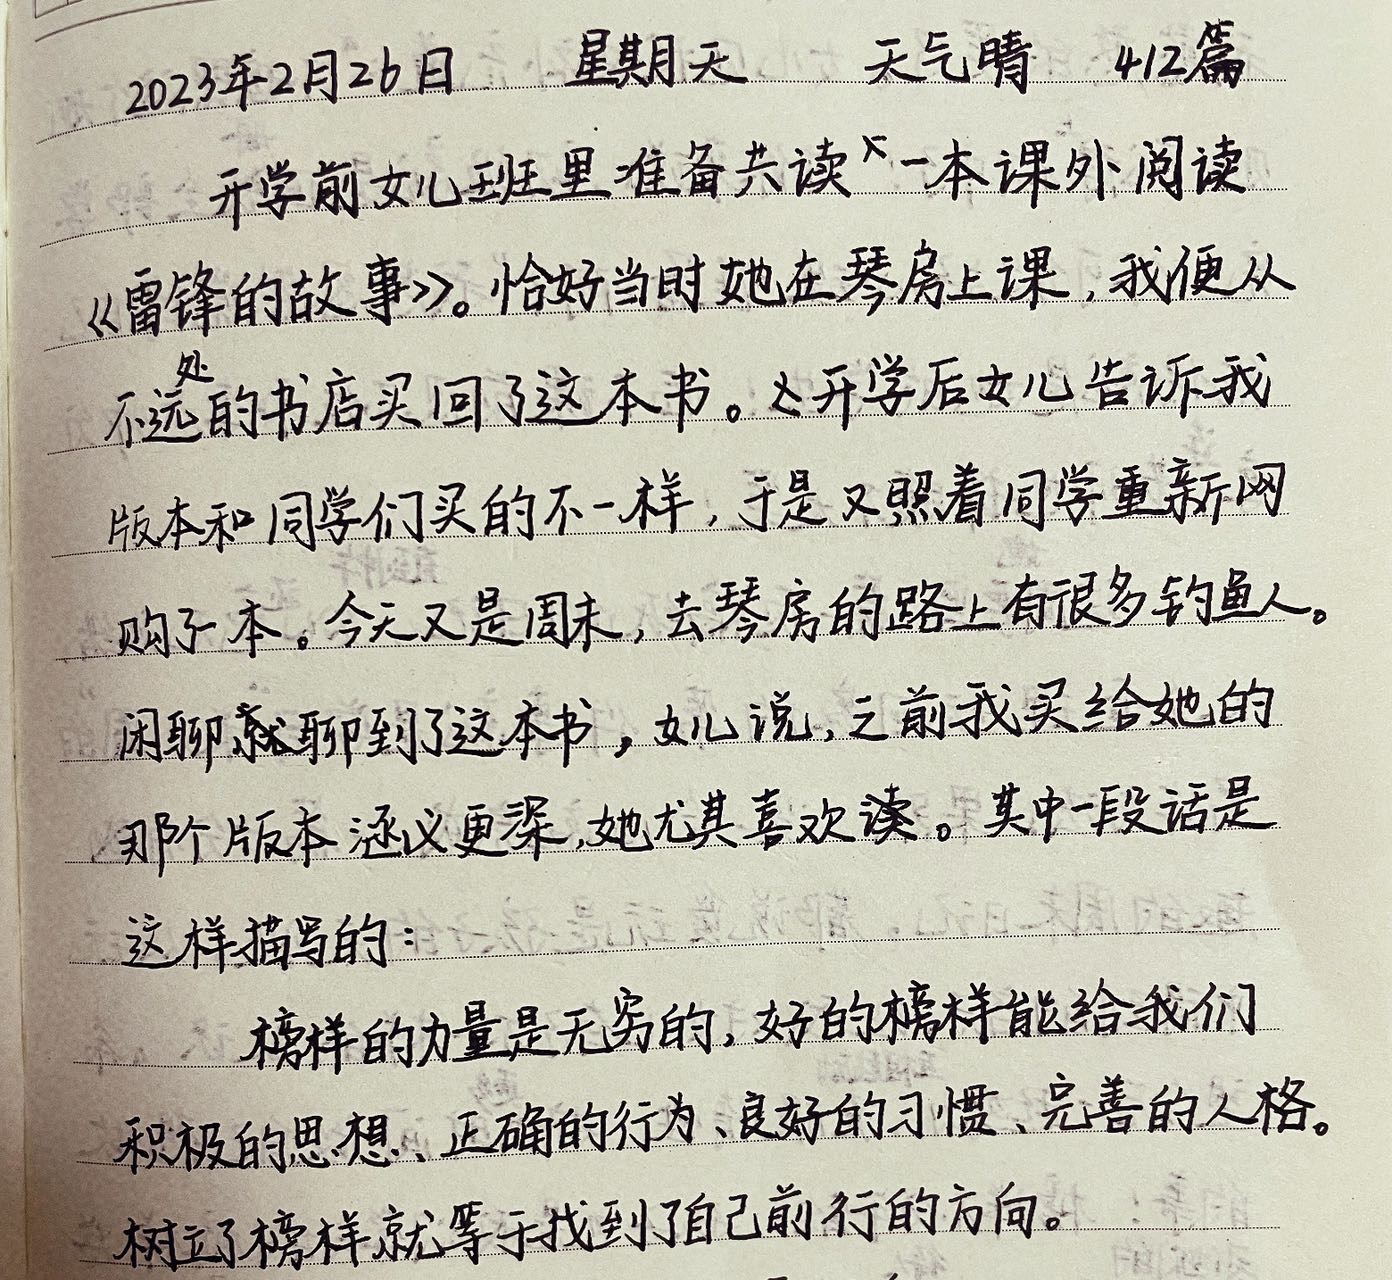 2023年2月26日 星期天 天气晴 412篇
开学前女儿班里准备共读一本课外阅读
《雷锋的故事》。恰好当时她在琴房上课,我便从
不远处的书店买回了这本书。开学后女儿告诉我
版本和同学们买的不一样,于是又照着同学重新网
购了一本。今天又是周末,去琴房的路上有很多钓鱼人。
闲聊就聊到了这本书,女儿说,之前我买给她的
那个版本涵义更深,她尤其喜欢读。其中一段话是
这样描写的:
榜样的力量是无穷的,好的榜样能给我们
积极的思想、正确的行为、良好的习惯、完善的人格。
树立了榜样就等于找到了自己前行的方向。